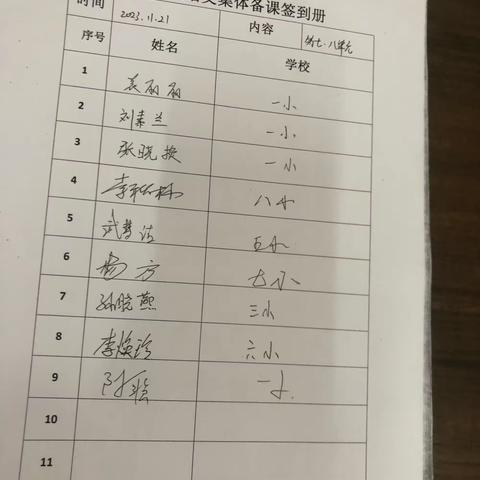 集体备课签到册
时间 2023.11.21 内容 第七、八单元
序号 姓名 学校
1 袁丽丽 一小
2 刘素兰 一小
3 张晓换 一小
4 八小
5 五小
6 杨方 七小
7 孙晓燕 三小
8 李焕珍 六小
9 一小
10
11